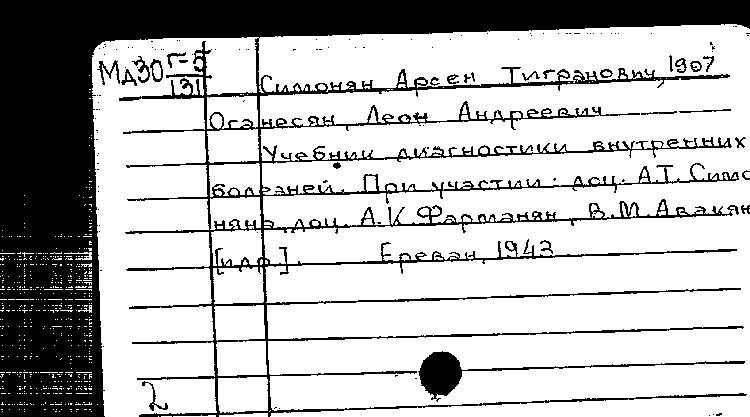 МД30 Г-5
131
Симонян, Арсен Тигранович, 1907
Оганесян, Леон Андреевич
Учебник диагностики внутренних
болезней. При участии: доц. А.Т. Симо
няна, доц. А.К. Фарманян, В.М. Авакян
[и др.]. Ереван, 1943
2